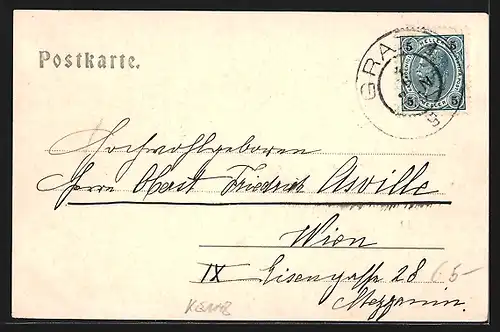 Postkarte.
GRAZ
5 HELLER 5
5 5
Hochwohlgeboren
Herrn Oberst Friedrich Asville
Wien
IX Eisengasse 28
Mezzanin.
6.5-